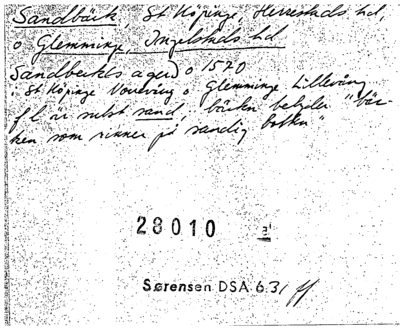 Sandbäck, St Köpinge, Herrestads hd,
o Glemminge, Ingelstads hd
Sandbeckks agerd o 1570
St Köpinge Vournång o Glemminge Lillevång
f l är subst sand, bäcken betyder "bäc-
ken som rinner på sandig botten"
28010
Sørensen DSA 631 ff